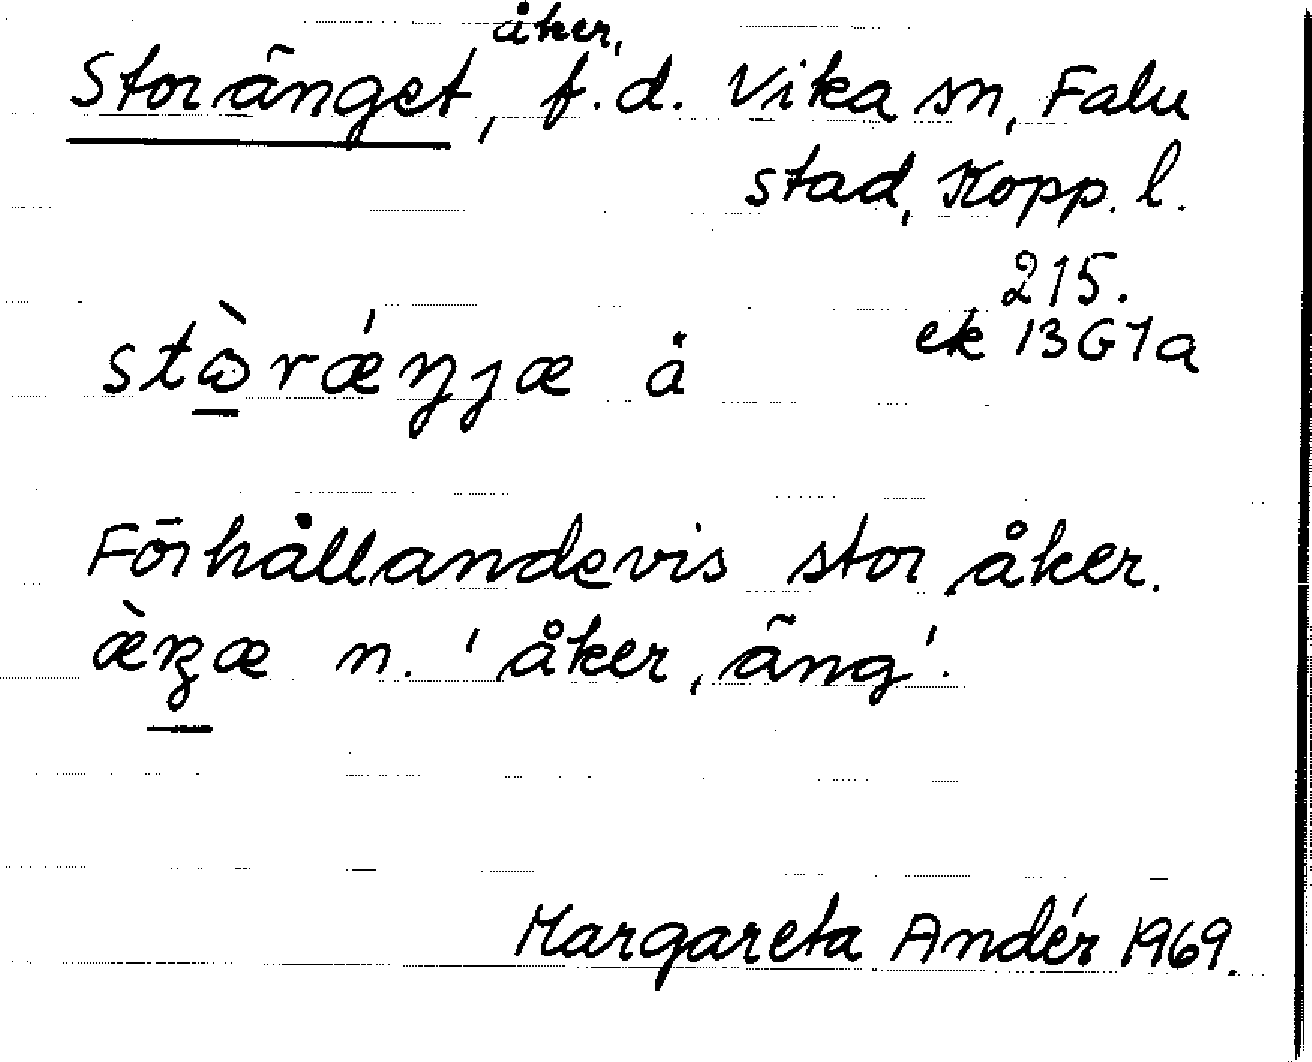 Storänget, åker, f.d. Vika sn, Falu
stad, Kopp. l.
215.
ek 13G1a
å
Förhållandevis stor åker.
n. 'åker, äng'.
Margareta Andér 1969.